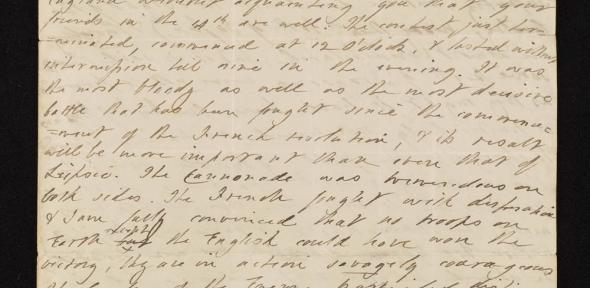 England without acquainting you that your
friends in the 44th are well. The contest just ter=
=minated, commenced at 12 O'Clock, & lasted without
intermission till nine in the evening. It was
the most bloody as well as the most decisive
battle that has been fought since the commence=
=ment of the French revolution, & its result
will be more important than even that of
Leipsic. The Cannonade was tremendous on
both sides. The French fought with desperation
& I am fully convinced that no troops on
Earth except the English could have won the
victory, they are in action savagely courageous
of the